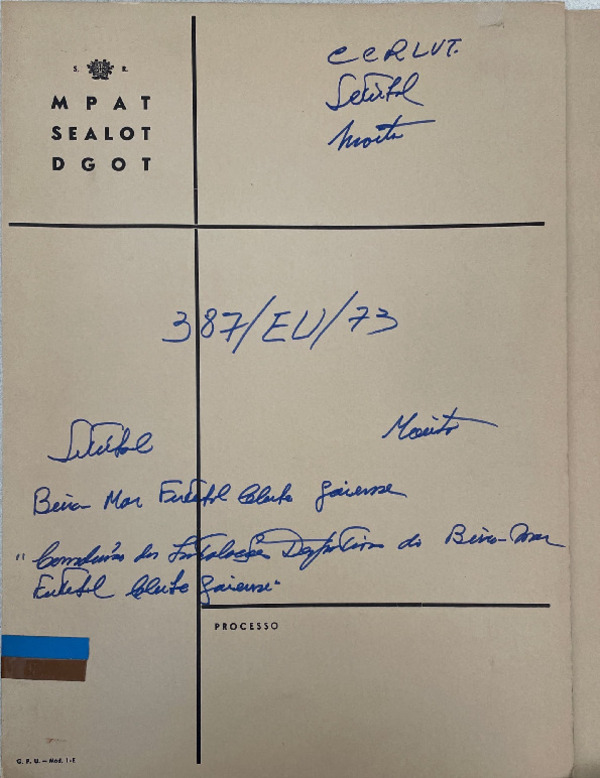 S. R.
MPAT
SEALOT
DGOT
CCRLVT.
Setúbal
Moita
387/EU/73
Setúbal
Moita
Beira-Mar Futebol Clube Gaiense
"Conclusão das Instalações Desportivas do Beira-Mar
Futebol Clube Gaiense"
PROCESSO
G. P. U. — Mod. 1-E